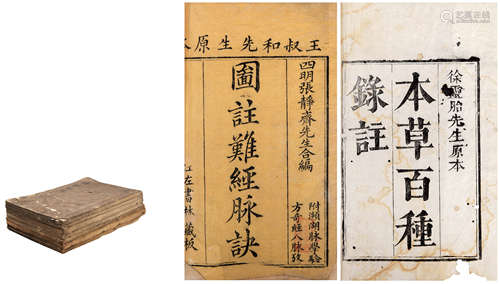 王叔和先生原本
四明張靜齋先生合編
圖註難經脉訣
附瀕湖脉學驗
方奇經八脉攷
江左書林藏板
徐靈胎先生原本
本草百種
錄註